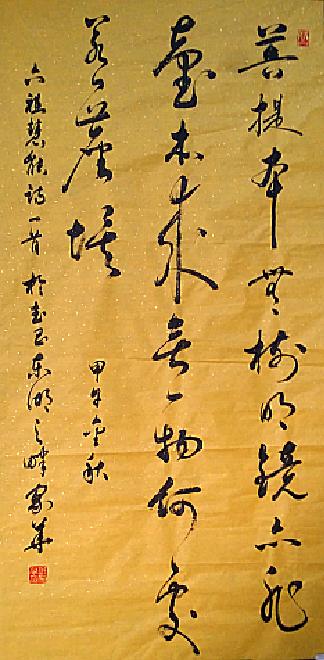 菩提本無樹明鏡亦非
臺本来無一物何處
惹塵埃
甲午金秋
六祖慧能詩一首於东湖之畔